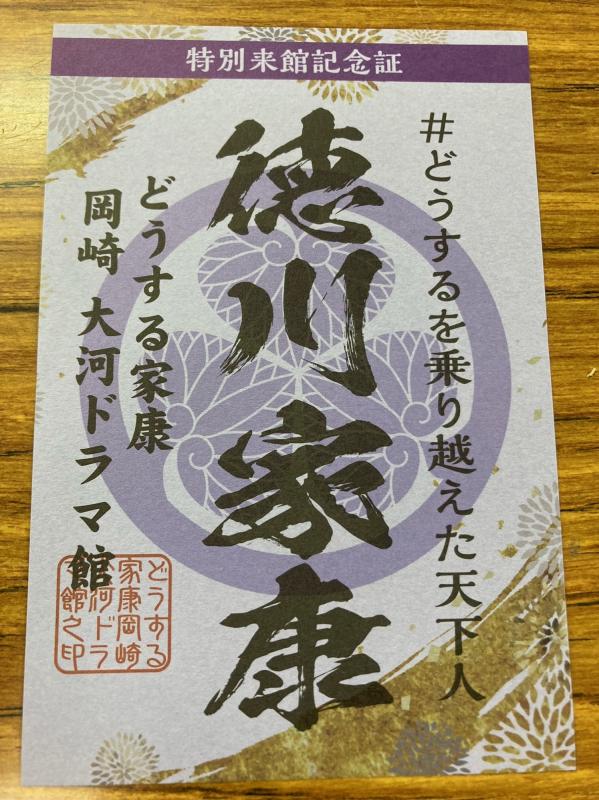 特別来館記念証
#どうするを乗り越えた天下人
徳川家康
どうする家康
岡崎 大河ドラマ館
どうする
家康岡崎
大河ドラマ
館之印